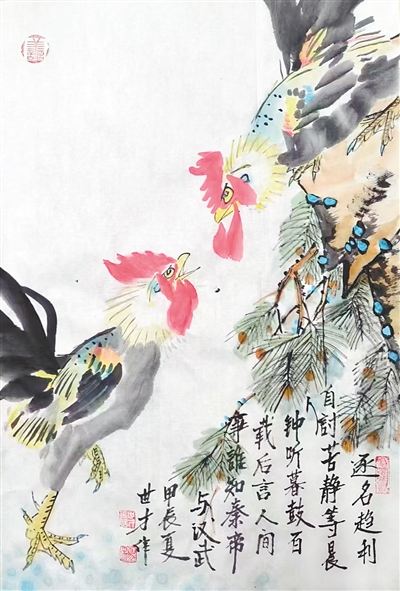 逐名趋利
自苦静等晨
钟听暮鼓百
载后言人间
事谁知秦帝
与汉武
甲辰夏
世才作